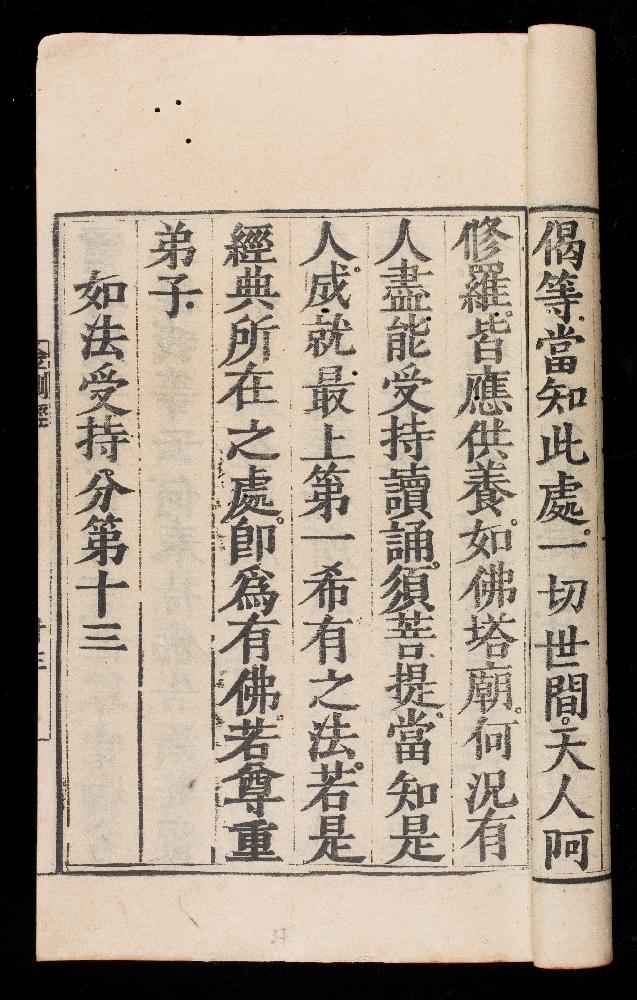 偈等當知此處。一切世間。天人阿
修羅。皆應供養。如佛塔廟。何況有
人盡能受持讀誦。須菩提。當知是
人。成就最上第一希有之法。若是
經典所在之處。即爲有佛。若尊重
弟子。
如法受持分第十三
金剛經
37